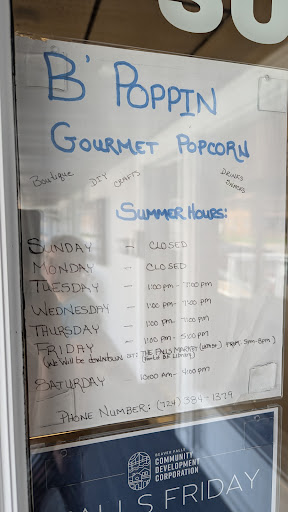 SU
B' POPPIN
GOURMET POPCORN
Boutique DIY CRAFTS DRINKS SNACKS
SUMMER HOURS:
SUNDAY - CLOSED
MONDAY - CLOSED
TUESDAY - 1:00 pm - 7:00 pm
WEDNESDAY - 1:00 pm - 7:00 pm
THURSDAY - 1:00 pm - 7:00 pm
FRIDAY - 1:00 pm - 5:00 pm
(We will be downtown at THE FALLS MARKET FROM 5pm-8pm)
SATURDAY - 10:00 AM - 4:00 pm
PHONE NUMBER: (724) 384-1379
BEAVER FALLS
COMMUNITY
DEVELOPMENT
CORPORATION
FALLS FRIDAY